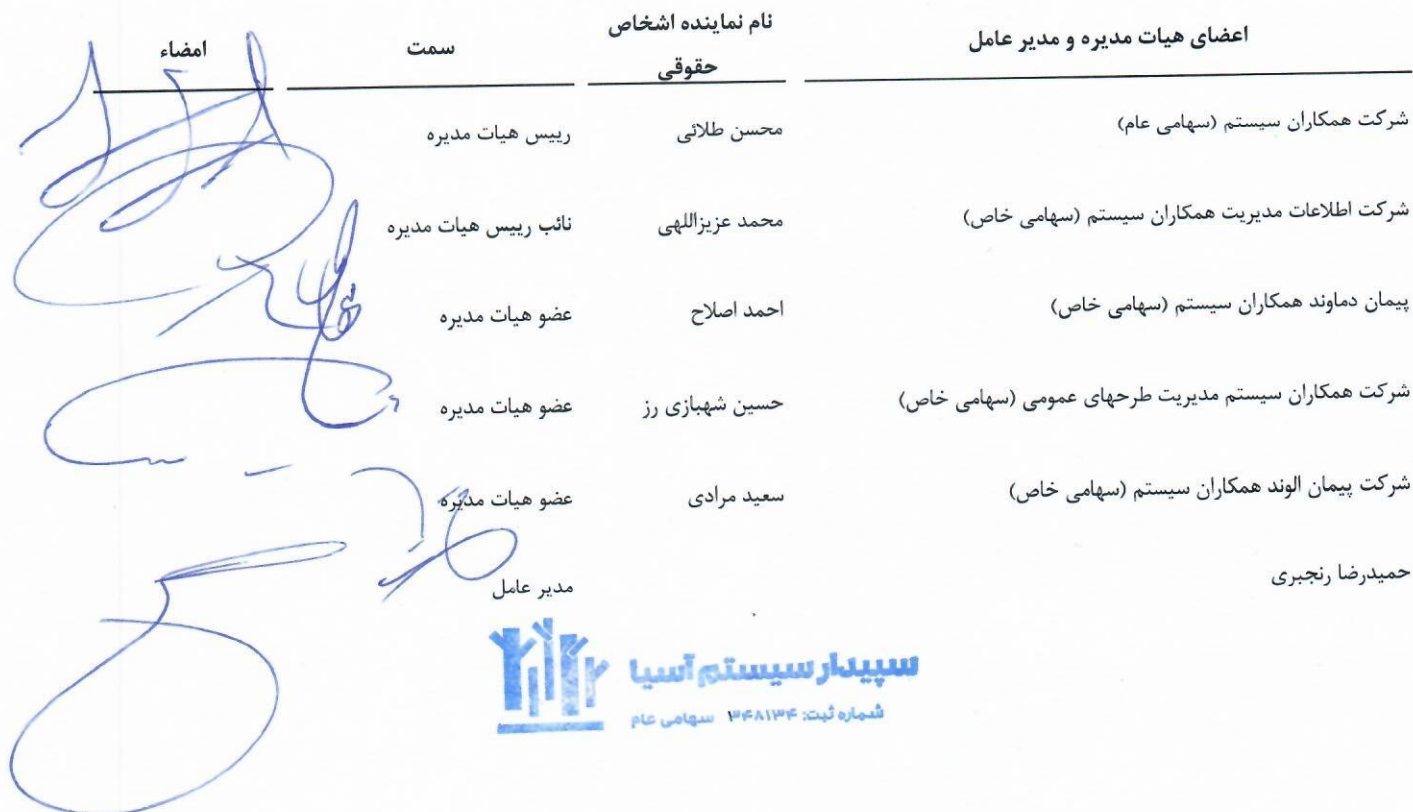 اعضای هیات مدیره و مدیر عامل	نام نماینده اشخاص حقوقی	سمت	امضاء
شرکت همکاران سیستم (سهامی عام)	محسن طلائی	رییس هیات مدیره
شرکت اطلاعات مدیریت همکاران سیستم (سهامی خاص)	محمد عزیزاللهی	نائب رییس هیات مدیره
پیمان دماوند همکاران سیستم (سهامی خاص)	احمد اصلاح	عضو هیات مدیره
شرکت همکاران سیستم مدیریت طرحهای عمومی (سهامی خاص)	حسین شهبازی رز	عضو هیات مدیره
شرکت پیمان الوند همکاران سیستم (سهامی خاص)	سعید مرادی	عضو هیات مدیره
حمیدرضا رنجبری	مدیر عامل
سپیدار سیستم آسیا
شماره ثبت: ۳۴۸۱۳۴ سهامی عام